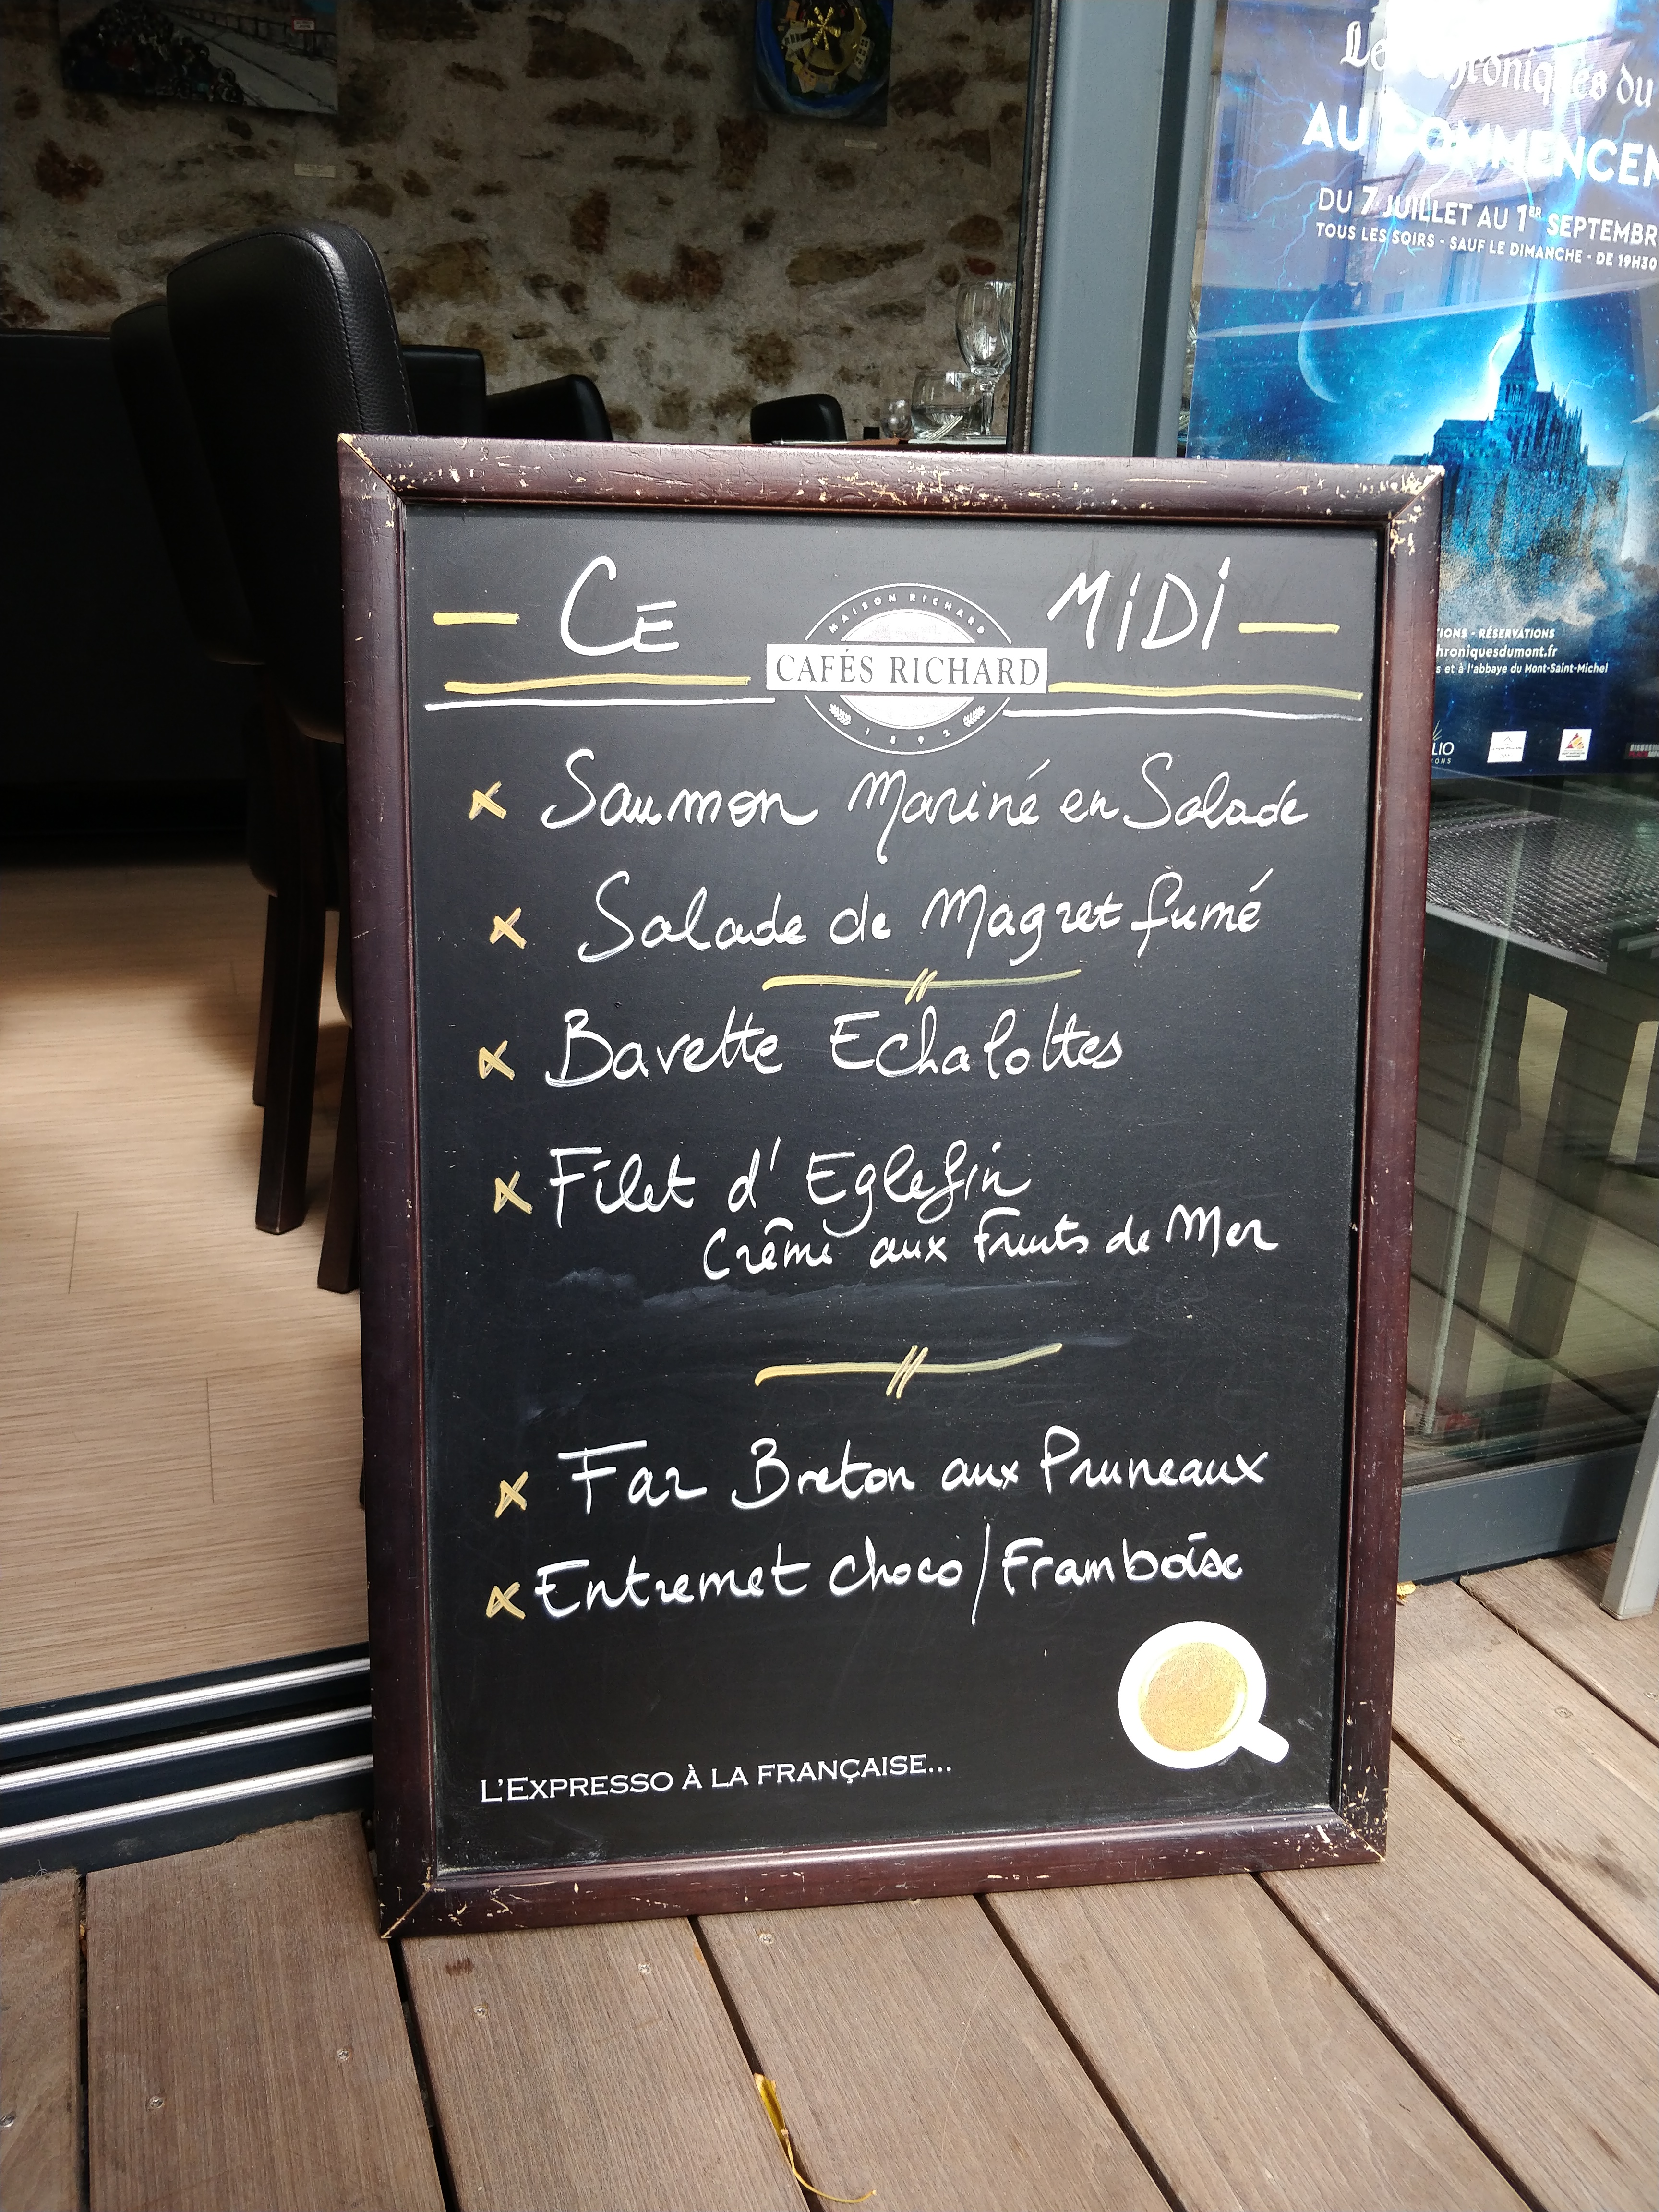 CE MiDi
MAISON RICHARD
CAFÉS RICHARD
1892
Saumon Mariné en Salade
Salade de Magret fumé
Bavette Echalottes
Filet d'Eglefin
Crême aux Fruits de Mer
Far Breton aux Pruneaux
Entremet choco/Framboise
L'EXPRESSO À LA FRANÇAISE...
Les Chroniques du
AU COMMENCEM
DU 7 JUILLET AU 1ER SEPTEMBRE
TOUS LES SOIRS - SAUF LE DIMANCHE - DE 19H30
IONS - RÉSERVATIONS
hroniquesdumont.fr
s et à l'abbaye du Mont-Saint-Michel
LIO
IONS